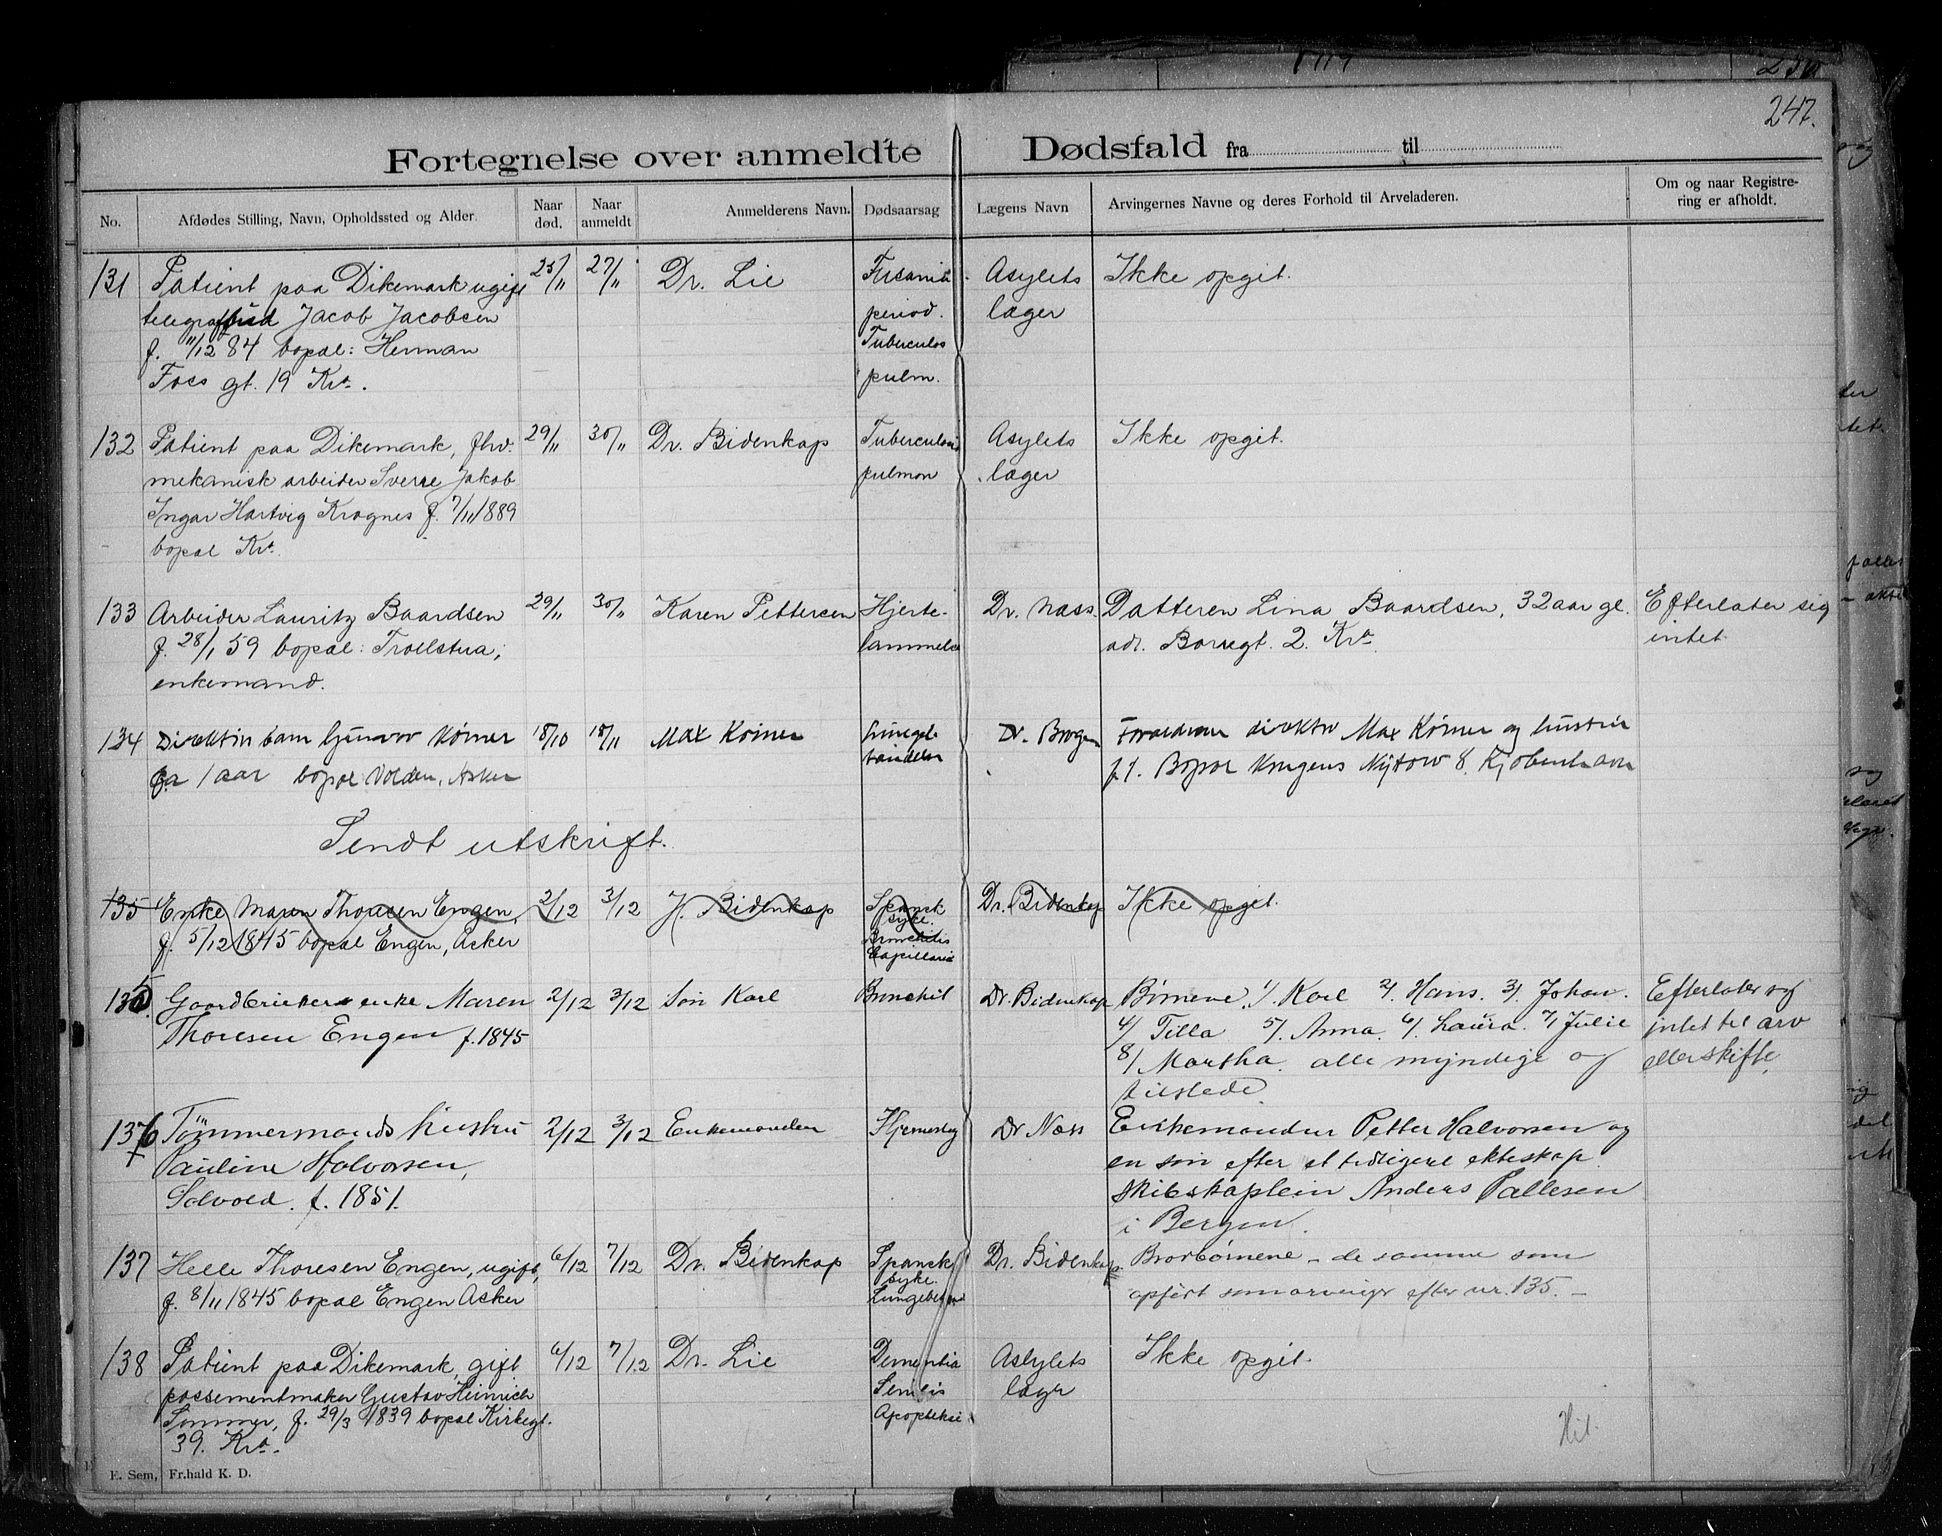 247.
Fortegnelse over anmeldte Dødsfald fra til
No. Afdødes Stilling, Navn, Opholdssted og Alder. Naar død. Naar anmeldt Anmelderens Navn. Dødsaarsag Lægens Navn Arvingernes Navne og deres Forhold til Arveladeren. Om og naar Registrering er afholdt.
131 Patient paa Dikemark ugift 25/11 27/11 Dr. Lie Asylets Ikke opgit.
Jacob Jacobsen period. læger
f. 11/12 84 bopæl: Herman Tuberculos
Foss gt. 19 Kra. pulm.
132 Patient paa Dikemark, fhv. 29/11 30/11 Dr. Bidenkap Tuberculosis Asylets Ikke opgit.
mekanisk arbeider Sverre Jakob pulmon læger
Ingar Hartvig Krognes f. 7/11 1889
bopæl Kra.
133 Arbeider Lauritz Baardsen 29/11 30/11 Karen Pettersen Hjerte- Dr. Næss. Datteren Lina Baardsen, 32 aar gl. Efterlater sig
f. 28/1 59 bopæl: Trollstua; lammelse adr. Borregt. 2. Kra. intet
enkemand.
134 Direktør barn Gunvor Körner 18/10 18/11 Max Körner Dr. Forældrene direktør Max Körner og hustru
1 aar bopæl Volden, Asker f. f. Bopæl Kongens Nytorv 8. Kjøbenhavn
Sendt utskrift.
135 Enke Maren Thoresen Engen, 2/12 3/12 J. Bidenkap Spansk Dr. Bidenkap Ikke opgit.
f. 5/12 1845 bopæl Engen, Asker syke.
Bronchitis
Capillaris
135. Gaardbruker enke Maren 2/12 3/12 Søn Karl Bronchit Dr. Bidenkap Børnene. 1/ Karl 2/. Hans. 3/. Johan. Efterlater sig
Thoresen Engen f. 1845 4/ Tilla 5/. Anna. 6/. Laura. 7/ Julie intet til arv
8/ Martha. alle myndige og eller skifte,
tilstede.
136 Tömmermands hustru 2/12 3/12 Enkemanden Dr Næss Enkemanden Petter Halvorsen og
Pauline Halvorsen, en søn efter et tidligere ekteskap
Solvold. f. 1851. skibskaptein Anders Pallesen
i Bergen.
137 Helle Thoresen Engen, ugift, 6/12 7/12 Dr. Bidenkap Spansk Dr. Bidenkap. Brorbørnene – de samme som
f. 8/11 1845 bopæl Engen Asker syke. opført som arvinger efter nr. 135. –
138 Patient paa Dikemark, gift 6/12 7/12 Dr. Lie Dementia Aslylets Ikke opgit.
possementmaker Gustav Heinrich Senilis læger
Sommer, f. 29/3 1839 bopæl Kirkegt. Apopleksi
39. Kra. Hit.
E. Sem, Fr.hald K. D.